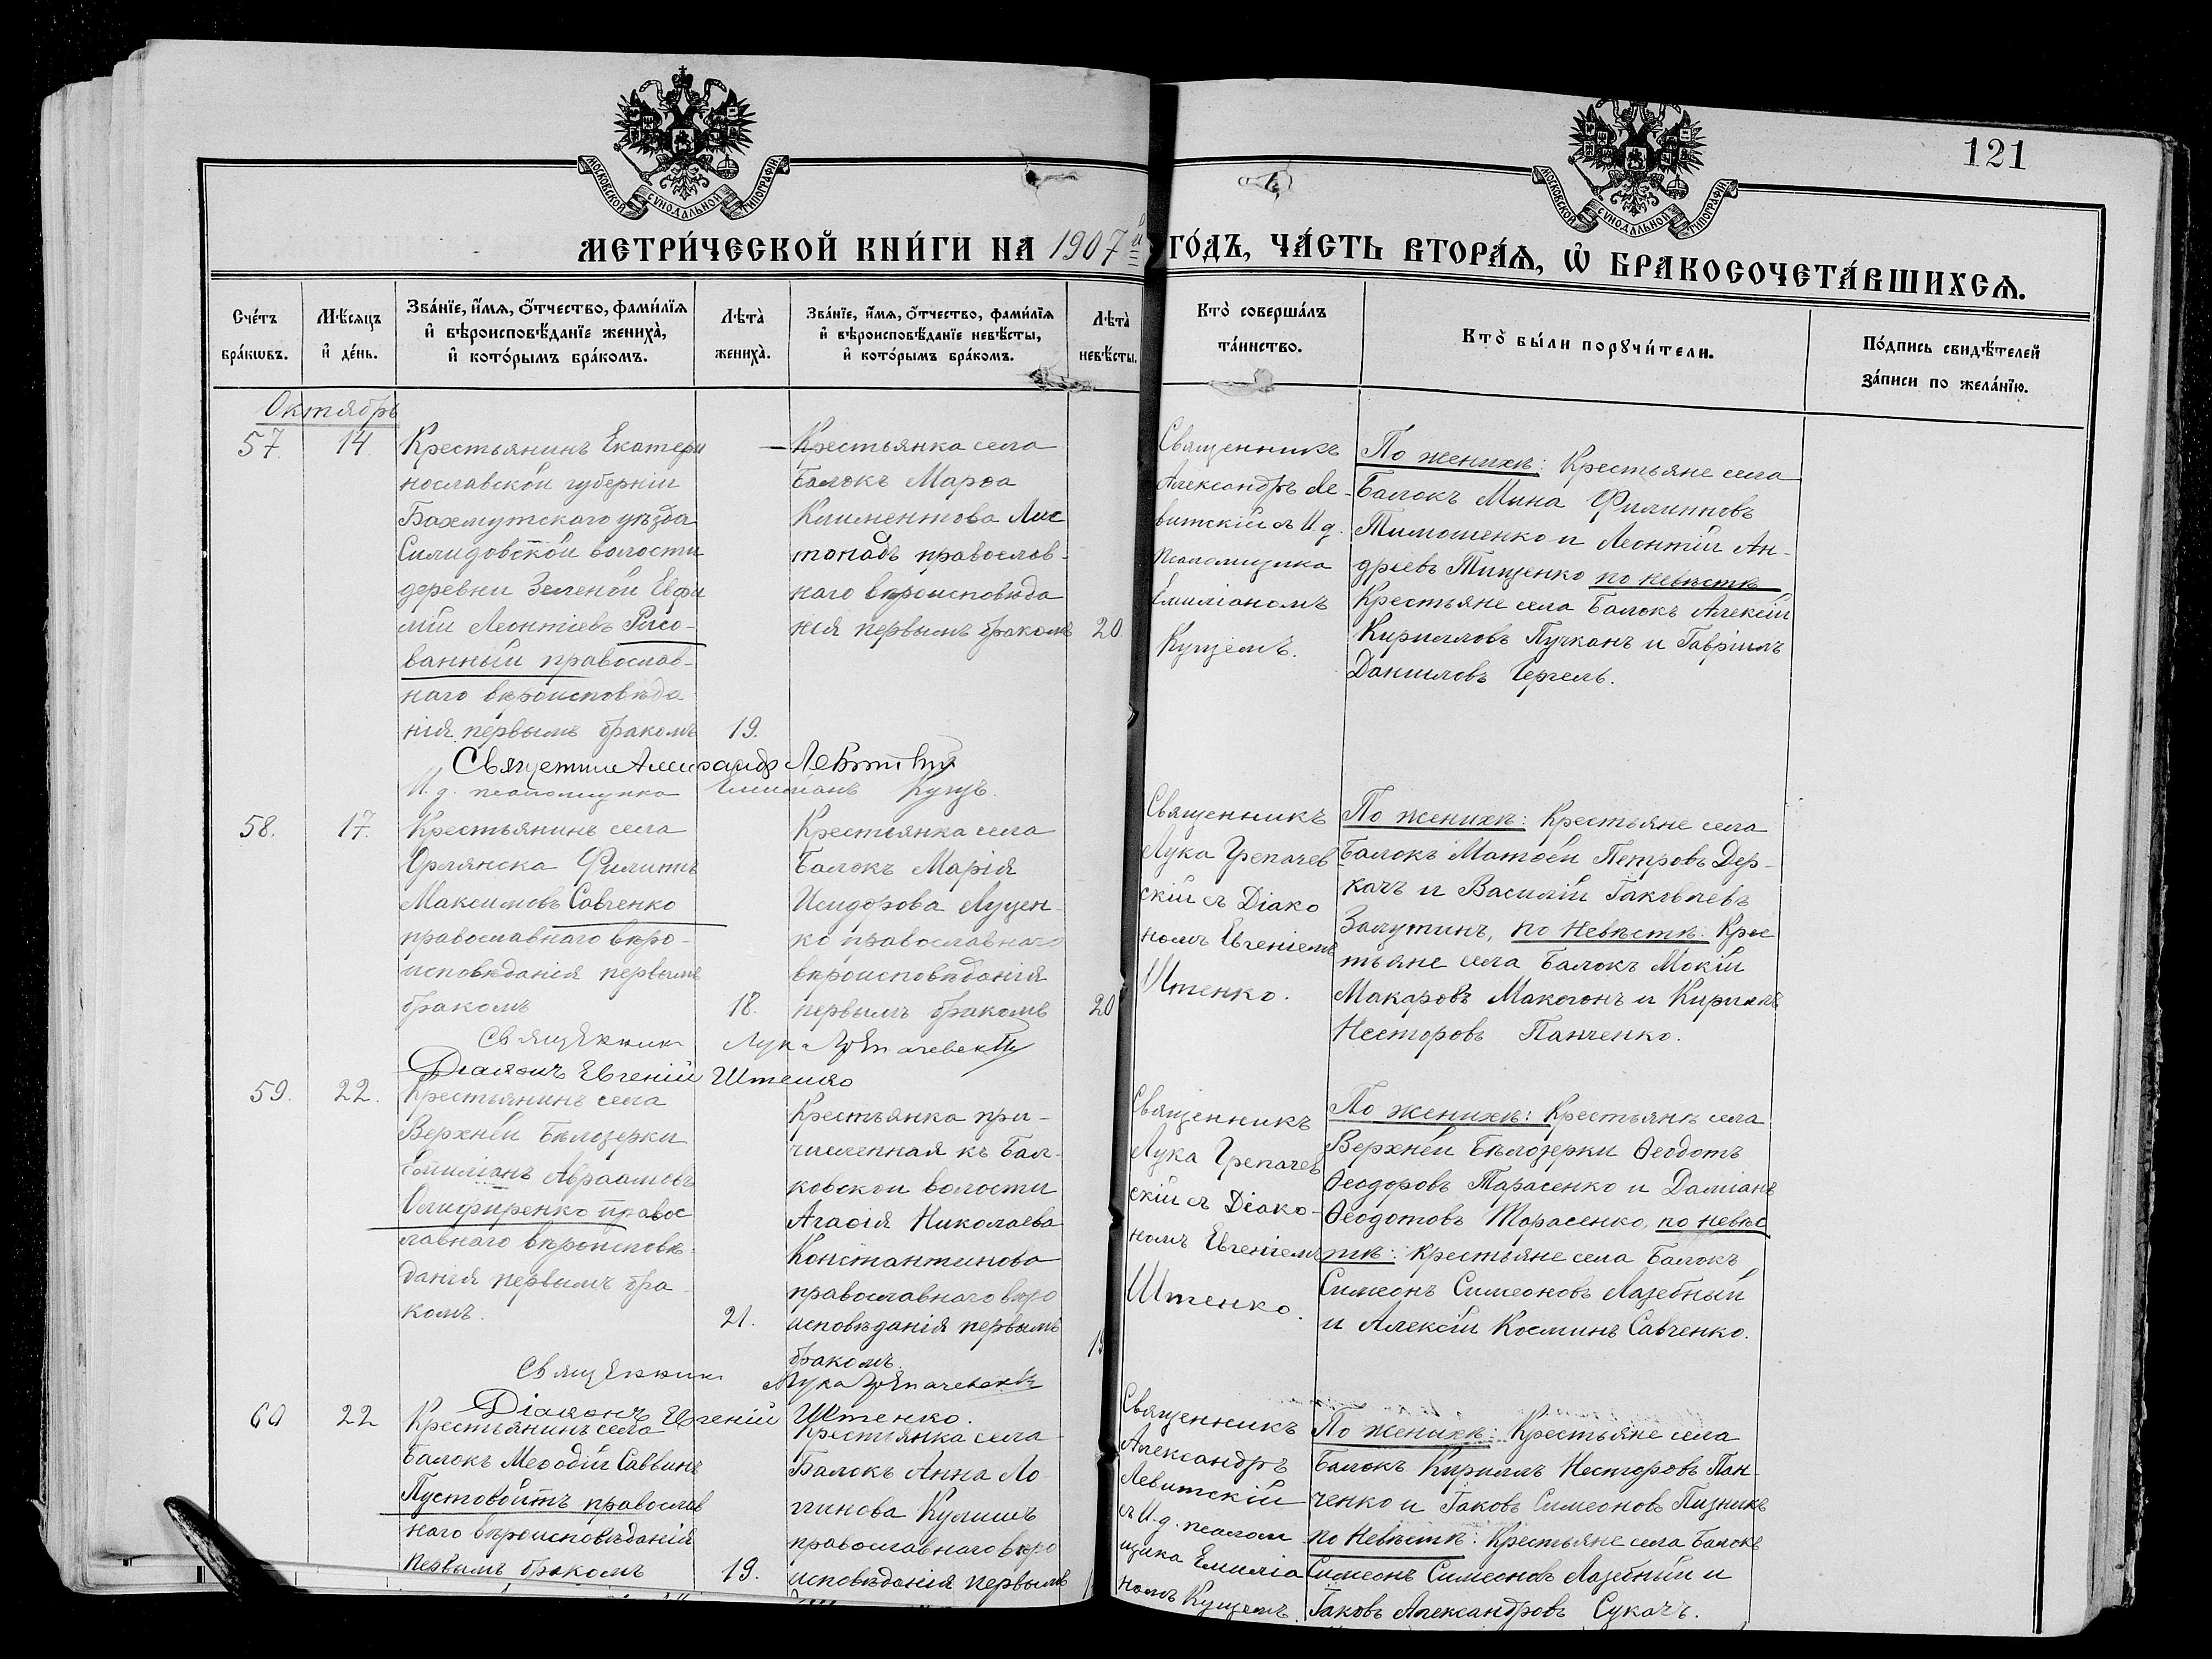 121
МОСКОВСКОЙ СѴНОДАЛЬНОЙ ТИПОГРАФІИ
МОСКОВСКОЙ СѴНОДАЛЬНОЙ ТИПОГРАФІИ
МЕТРИ́ЧЕСКОЙ КНИ́ГИ НА 1907й ГО́ДЪ, ЧА́СТЬ ВТОРА́Ѧ, Ѡ҆ БРАКОСОЧЕТА́ВШИХСѦ.
Сче́тъ
бра́кѡвъ.
Мѣ́сѧцъ
и҆ де́нь.
Зва́нїе, и҆́мѧ, ѻ҆́тчество, фами́лїѧ
и҆ вѣроисповѣ́данїе жениха̀,
и҆ кото́рымъ бра́комъ.
Лѣта̀
жениха̀.
Зва́нїе, и҆́мѧ, ѻ҆́тчество, фами́лїѧ
и҆ вѣроисповѣ́данїе невѣ́сты,
и҆ кото́рымъ бра́комъ.
Лѣта̀
невѣ́сты.
Кто̀ соверша́лъ
та́инство.
Кто̀ бы́ли порꙋчи́тели.
По́дпись свидѣ́телей
за́писи по жела́нїю.
Октябрь
57.
14.
Крестьянинъ Екатери
нославской губерніи
Бахмутскаго уѣзда
Силидовской волости
деревни Зеленой Евфи
мій Леонтіевъ Рисо-
ванный православ-
наго вѣроисповѣда
нія первымъ бракомъ
19.
Крестьянка села
Балокъ Марѳа
Климентова Лис
топадъ православ-
наго вѣроисповѣда
нія первымъ бракомъ
20.
Священникъ
Александръ Ле-
витскій съ И. д.
псаломщика
Емиліаномъ
Кущемъ.
По женихѣ: Крестьяне села
Балокъ Мина Филипповъ
Тимошенко и Леонтій Ан-
дреевъ Тищенко по невѣстѣ
Крестьяне села Балокъ Алексій
Кирилловъ Пучканъ и Гавріилъ
Даниловъ Чергель.
Священникъ Александръ Левитскій
И. д. псаломщика Емиліанъ Кущъ.
58.
17.
Крестьянинъ села
Орлянска Филиппъ
Максимовъ Савченко
православнаго вѣро-
исповѣданія первымъ
бракомъ
18.
Крестьянка села
Балокъ Марія
Исидорова Луцен-
ко православнаго
вѣроисповѣданія
первымъ бракомъ
20
Священникъ
Лука Грепачев
скій съ Діако
номъ Евгеніемъ
Штенко.
По женихѣ: Крестьяне села
Балокъ Матѳей Петровъ Дер-
качъ и Василій Іаковлевъ
Залутинъ, по невѣстѣ: Крес
тьяне села Балокъ Мокій
Макаровъ Макогонъ и Кириллъ
Несторовъ Панченко.
Священникъ Лука Грепачевскій
Діаконъ Евгеній Штенко
59.
22.
Крестьянинъ села
Верхней Бѣлозерки
Емиліанъ Авраамовъ
Олифиренко правос
лавнаго вѣроисповѣ-
данія первымъ бра-
комъ.
21.
Крестьянка при-
численная къ Бал-
ковской волости
Агаѳія Николаева
Константинова
православнаго вѣро
исповѣданія первымъ
бракомъ.
Священникъ
Лука Грепачев
скій съ Діако-
номъ Евгеніемъ
Штенко.
По женихѣ: Крестьяне села
Верхней Бѣлозерки Ѳеодотъ
Ѳеодоровъ Тарасенко и Даміанъ
Ѳеодотовъ Тарасенко, по невѣс
тѣ: крестьяне села Балокъ
Симеонъ Симеоновъ Лазебный
и Алексій Косминъ Савченко.
Священникъ Лука Грепачевскій
Діаконъ Евгеній Штенко.
60
22
Крестьянинъ села
Балокъ Меѳодій Саввинъ
Пустовойтъ православ
наго вѣроисповѣданія
первымъ бракомъ
19.
Крестьянка села
Балокъ Анна Ло
гинова Кулишъ
православнаго вѣро
исповѣданія первымъ
Священникъ
Александръ
Левитскій
съ И. д. псалом
щика Емиліа
номъ Кущемъ.
По женихѣ: Крестьяне села
Балокъ Кириллъ Несторовъ Пан-
ченко и Іаковъ Симеоновъ Пизникъ
по невѣстѣ: Крестьяне села Балокъ
Симеонъ Симеоновъ Лазебный и
Іаковъ Александровъ Сукачъ.